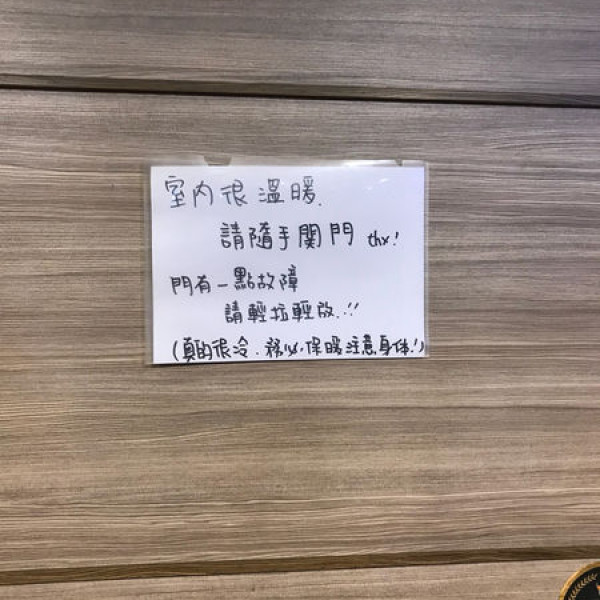 室內很溫暖.
請隨手関門 thx!
門有一點故障
請輕拉輕放.!!
(真的很冷.務必保暖注意身体!)